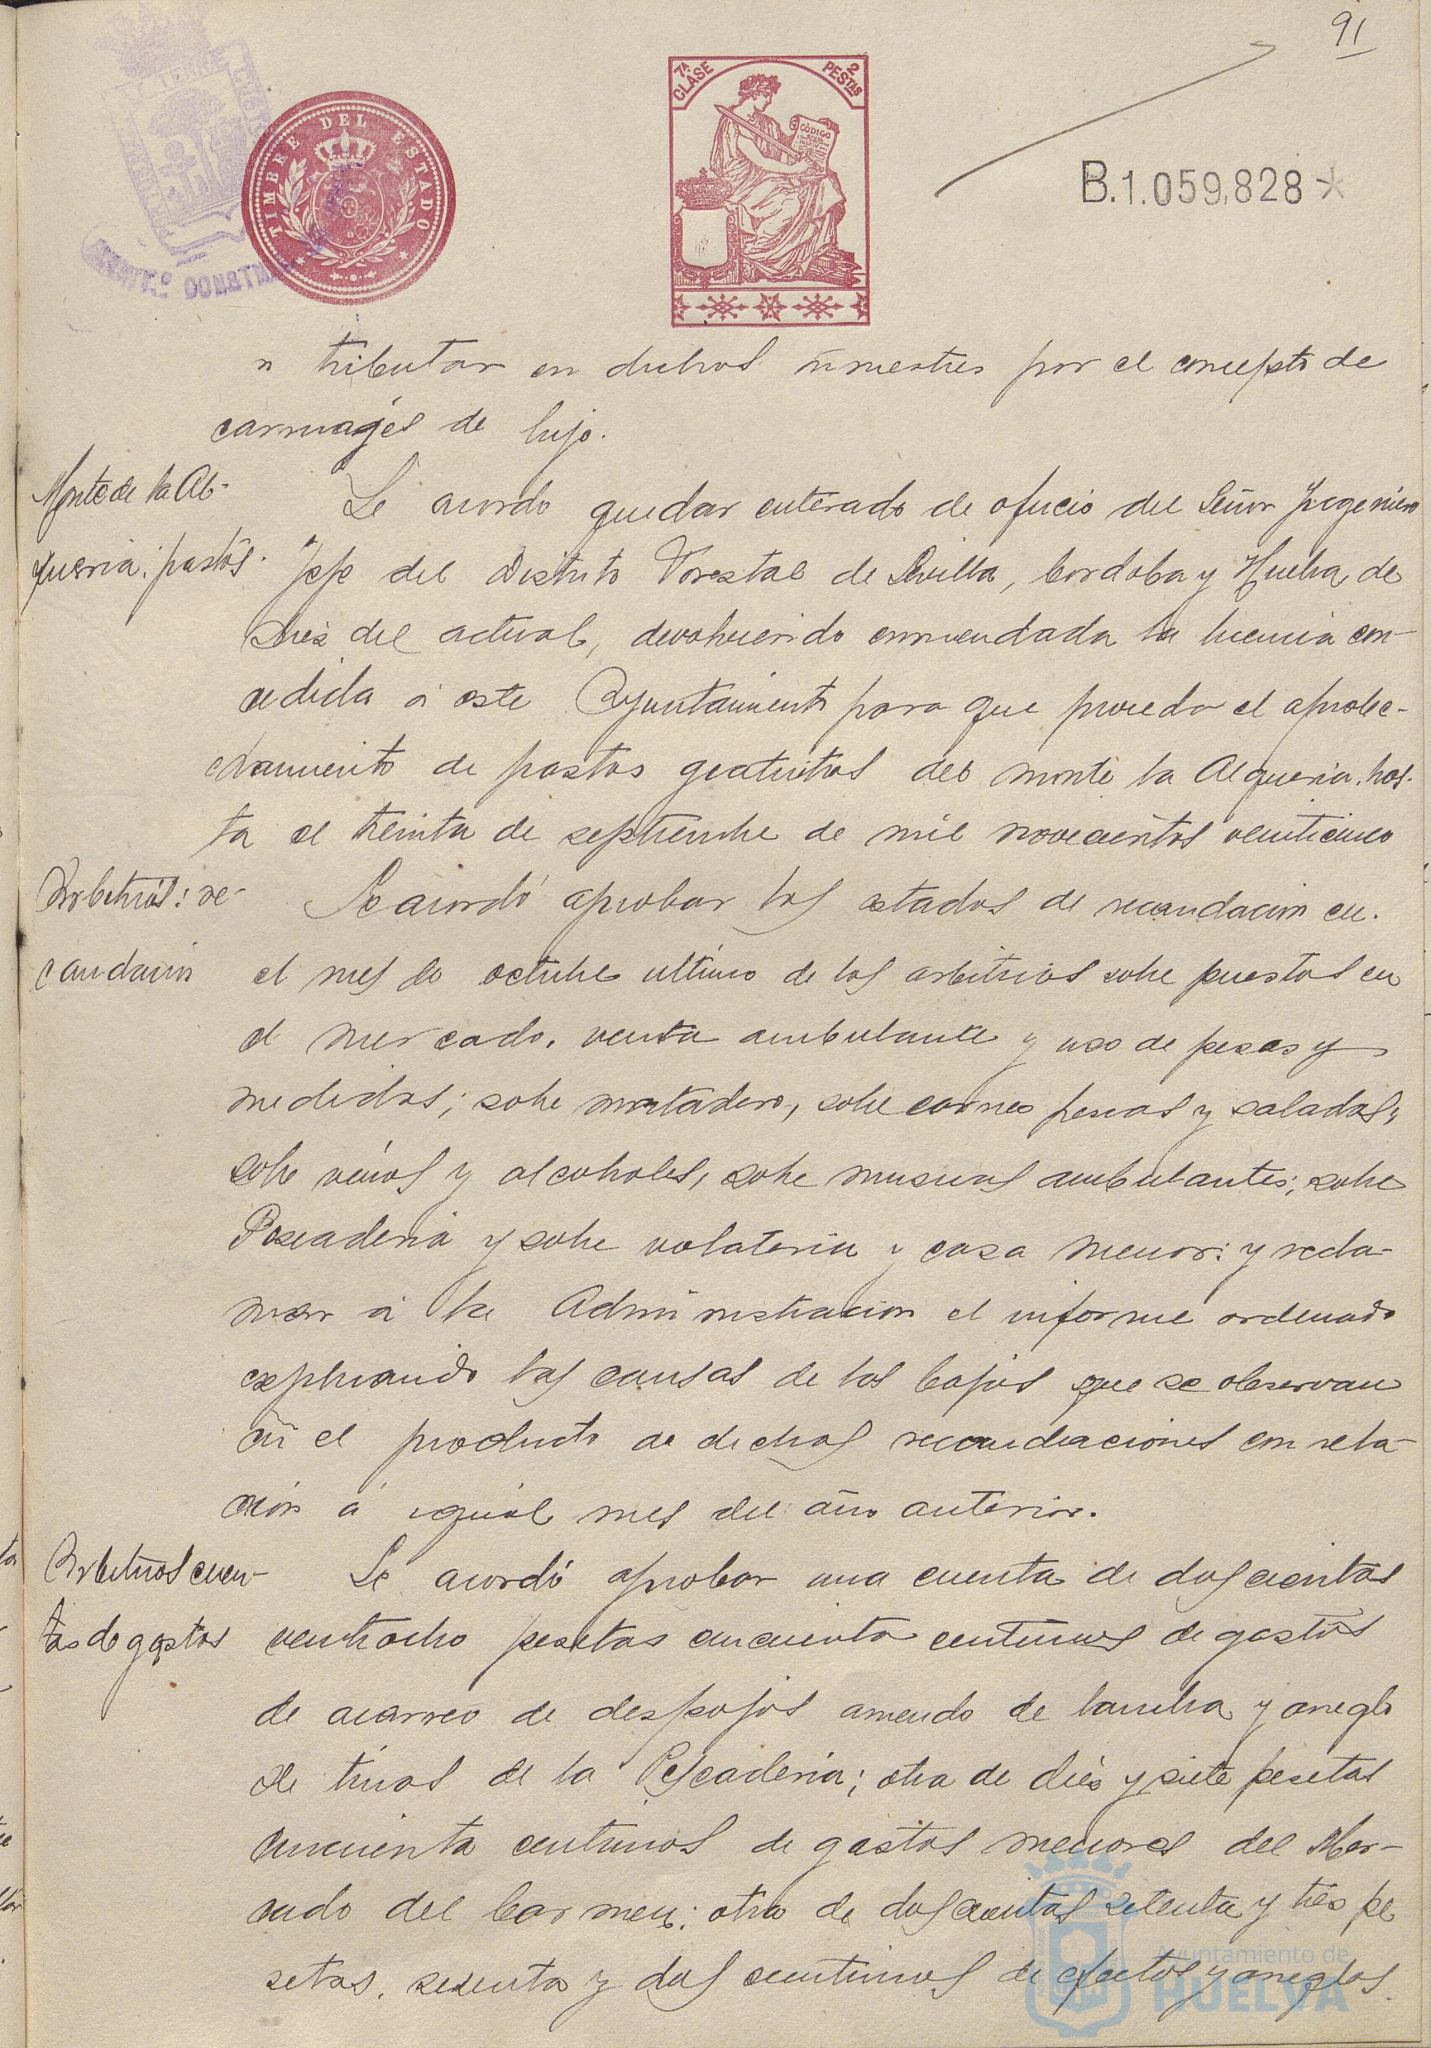 91
7ª CLASE
2 PESTAS
CÓDIGO
TIMBRE DEL ESTADO
B.1.059,828*
a tributar en dichos trimestres por el concepto de
carruajes de lujo.
Monte de la Al-
queria: pastos.
Se acordó quedar enterado de oficio del Señor Yngeniero
Jefe del Distrito Forestal de Sevilla, Cordoba y Huelva, de
tres del actual, devolviendo enmendada la licencia con-
cedida á este Ayuntamiento para que proceda el aprove-
chamiento de pastos gratuitos del monte la Alqueria, has-
ta el treinta de septiembre de mil novecientos veinticinco
Arbitrios: re-
caudacion
Se acordó aprobar los estados de recaudacion en
el mes de octubre ultimo de los arbitrios sobre puestos en
el mercado, venta ambulante y uso de pesas y
medidas; sobre matadero, sobre carnes frescas y saladas,
sobre vinos y alcoholes, sobre musicas ambulantes; sobre
Pescaderia y sobre volateria y caza menor: y recla-
mar á la Administracion el informe ordenado
explicando las causas de las bajas que se observan
en el producto de dichas recaudaciones con rela-
cion á igual mes del año anterior.
Arbitrios cuen-
tas de gastos
Se acordó aprobar una cuenta de doscientas
veintiocho pesetas cincuenta centimos de gastos
de acarreo de despojos arriendo de lancha y arreglo
de tinas de la Pescaderia; otra de diés y siete pesetas
cincuenta centimos de gastos menores del Mer-
cado del Carmen; otra de doscientas setenta y tres pe
setas, sesenta y dos centimos de efectos y arreglos
Ayuntamiento de
HUELVA